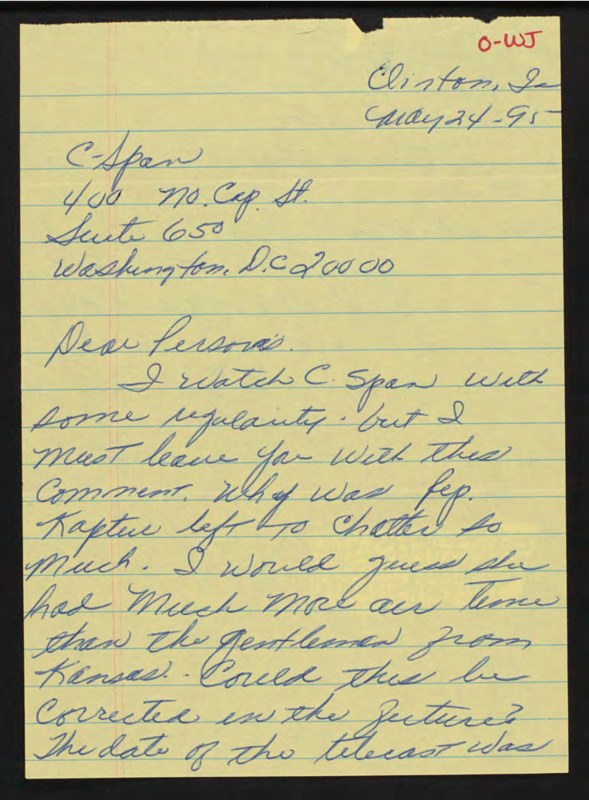 O-WJ
Clinton, Ia
May 24-95
C-Span
400 No. Cap. St.
Suite 650
Washington, D.C 20000
Dear Persons.
I watch C. Span with
some regularity. but I
must leave you with this
Comment. Why was Rep.
Kaptur left to chatter so
much. I would guess she
had much more air time
than the gentleman from
Kansas. Could this be
corrected in the future?
The date of the telecast was